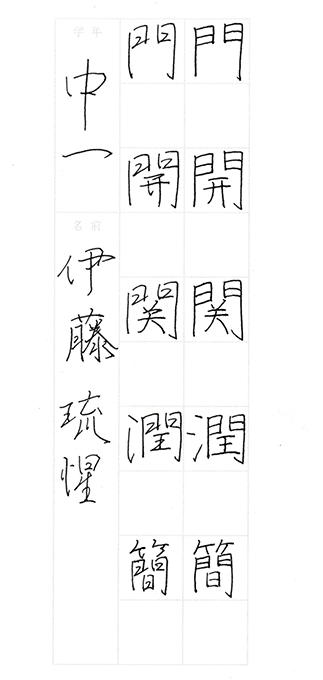 門開関潤簡
門開関潤簡
学年
中一
名前
伊藤琉惺